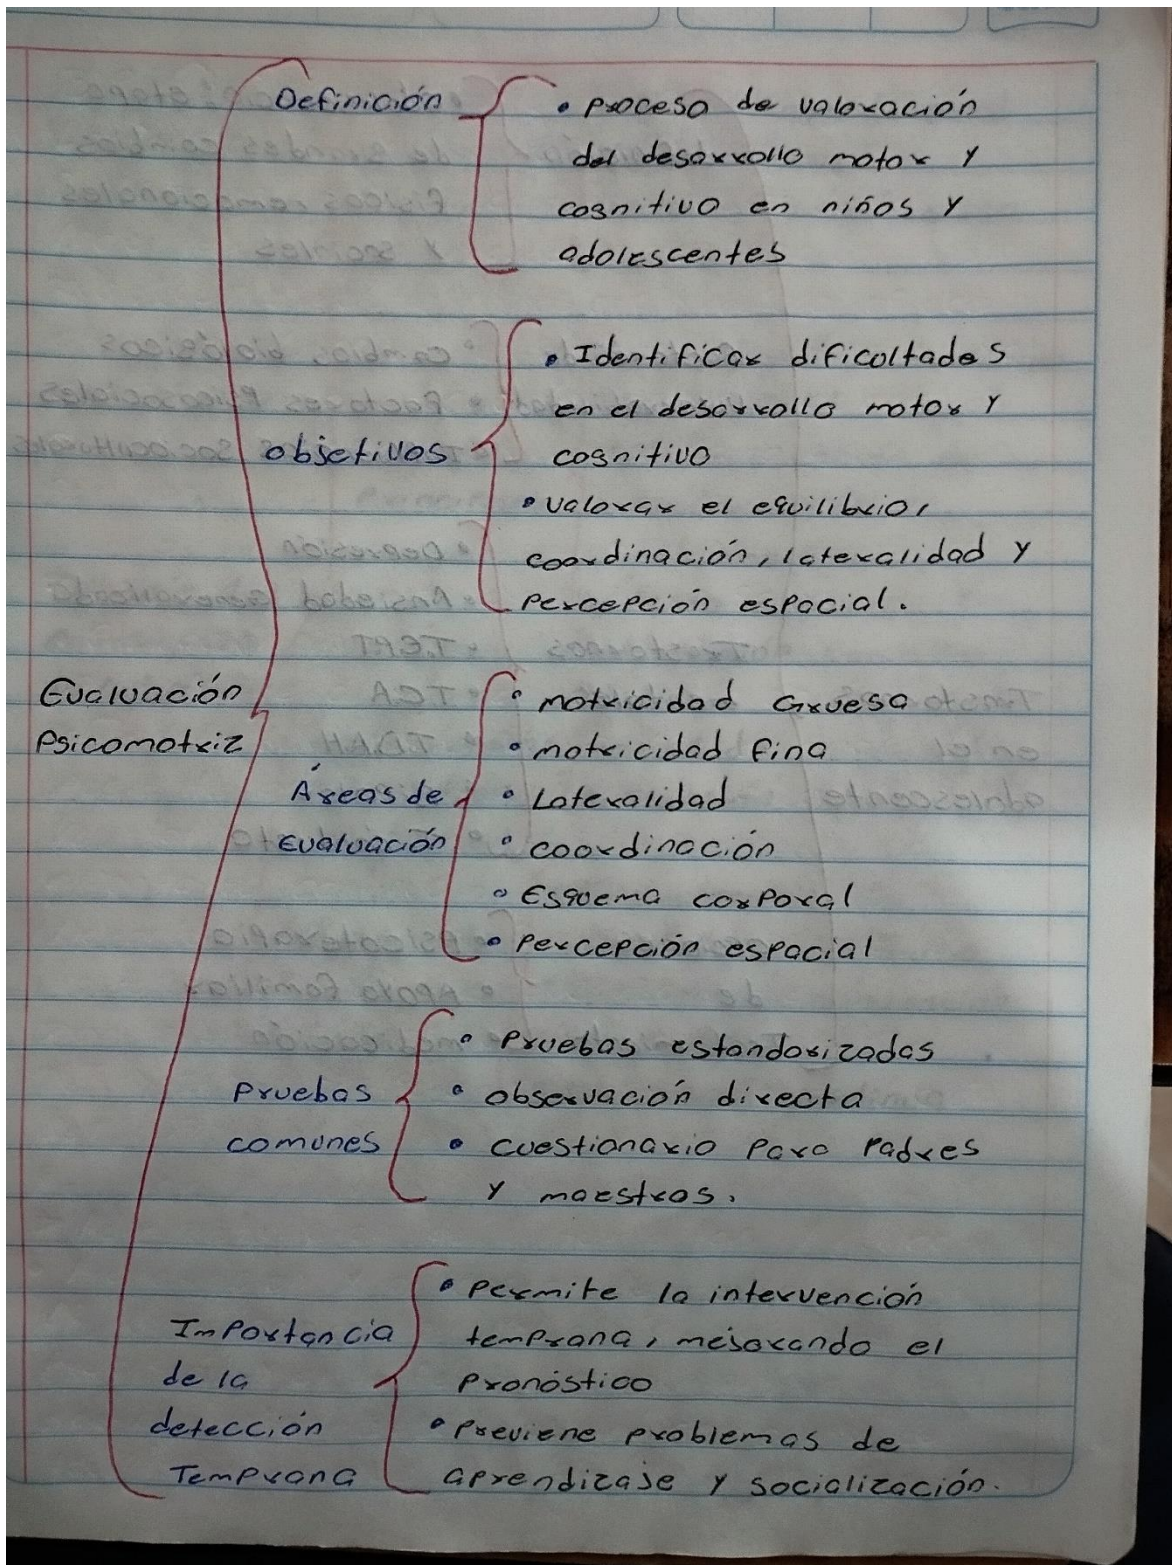 Definición
• Proceso de valoración
del desarrollo motor y
cognitivo en niños y
adolescentes
objetivos
• Identificar dificultades
en el desarrollo motor y
cognitivo
• valorar el equilibrio,
coordinación, lateralidad y
percepción espacial.
Evaluación
Psicomotriz
Áreas de
Evaluación
• motricidad Gruesa
• motricidad fina
• Lateralidad
• coordinación
• Esquema corporal
• Percepción espacial
Pruebas
comunes
• Pruebas estandarizadas
• observación directa
• cuestionario para Padres
y maestros.
Importancia
de la
detección
Temprana
• Permite la intervención
temprana, mejorando el
Pronóstico
• Previene problemas de
aprendizaje y socialización.